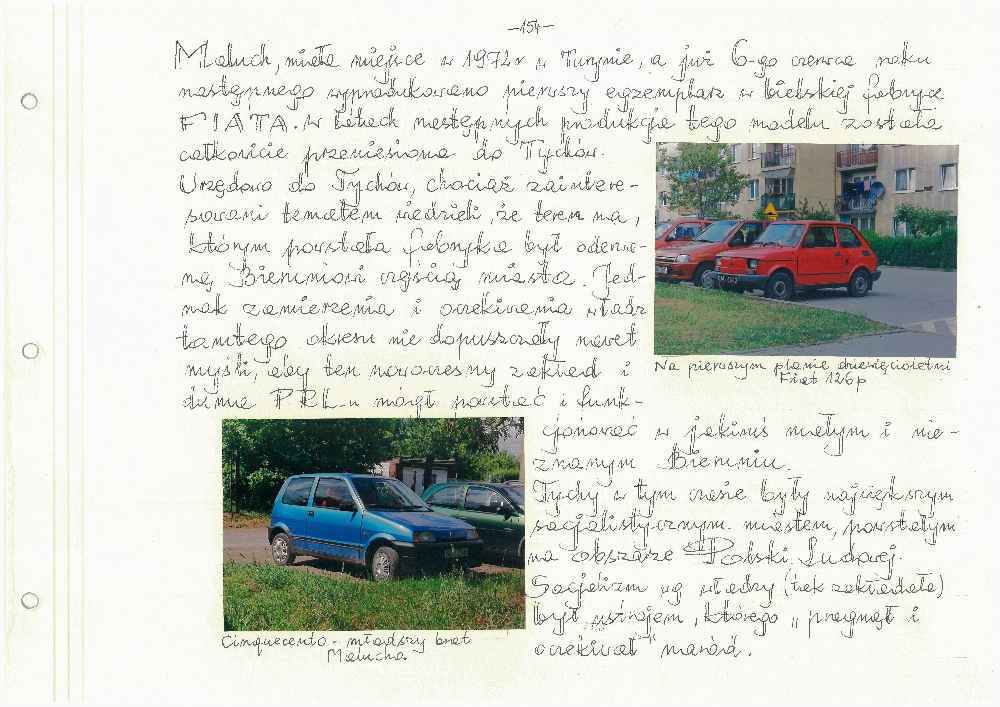 -154-
Maluch, miała miejsce w 1972r w Turynie, a już 6-go czerwca roku
następnego wyprodukowano pierwszy egzemplarz w bielskiej fabryce
FIATA. W latach następnych produkcja tego modelu została
całkowicie przeniesiona do Tychów.
Urzędowo do Tychów, chociaż zaintere-
sowani tematem wiedzieli, że teren na,
którym powstała fabryka był oderwa-
ną Bieruniowi częścią miasta. Jed-
nak zamierzenia i oczekiwania władz
tamtego okresu nie dopuszczały nawet
myśli, aby ten nowoczesny zakład i
duma PRL-u mógł powstać i funk-
cjonować w jakimś małym i nie-
znanym Bieruniu.
Tychy w tym czasie były największym
socjalistycznym miastem, powstałym
na obszarze Polski Ludowej.
Socjalizm wg władzy (tak zakładała)
był ustrojem, którego „pragnął i
oczekiwał" naród.
Na pierwszym planie dziewięcioletni
Fiat 126p
Cinquecento - młodszy brat
Malucha